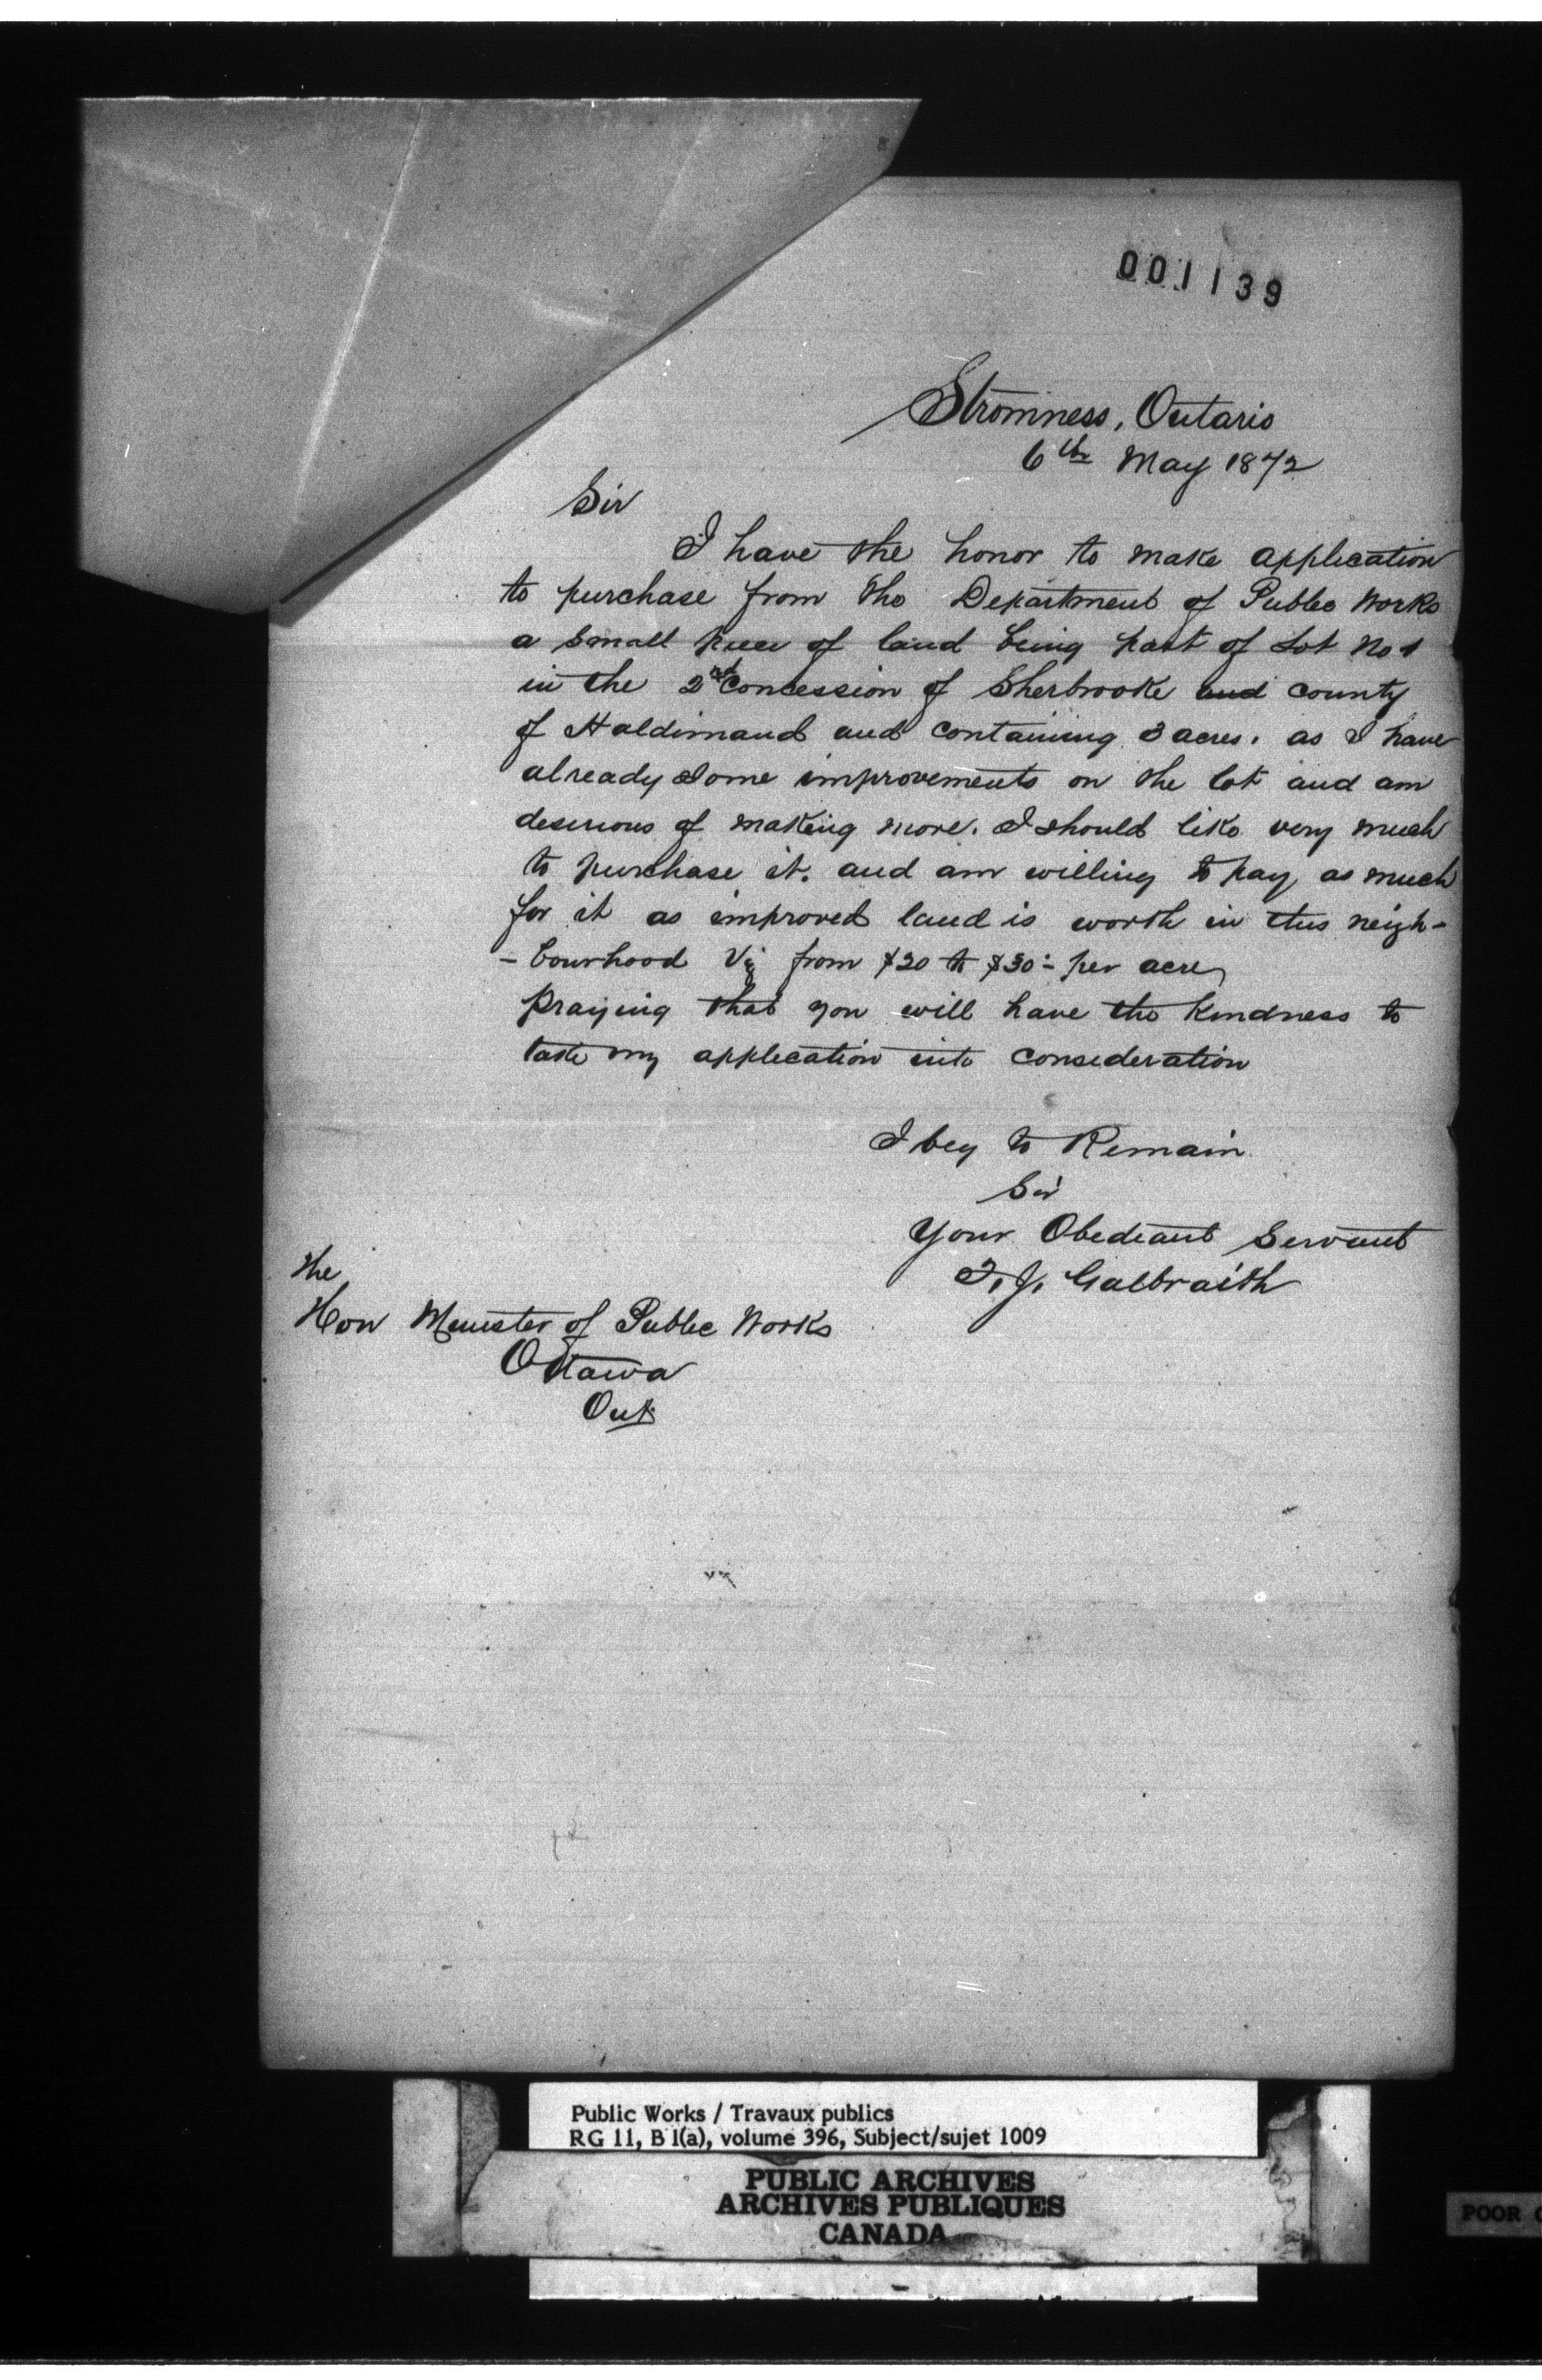 001139
Stromness, Ontario
6th May 1872
Sir
I have the honor to make application
to purchase from the Department of Public Works
a small piece of land being part of Lot No 1
in the 2nd Concession of Sherbrooke and county
of Haldimand and containing 3 acres. as I have
already some improvements on the lot and am
desirious of making more. I should like very much
to purchase it. and am willing to pay as much
for it as improved land is worth in this neigh-
-bourhood Viz from $20 to $30 - per acre,
Praying that you will have the kindness to
take my application into consideration
I beg to Remain
Sir
Your Obediant Servant
T. J. Galbraith
The
Hon Minister of Public Works
Ottawa
Ont
Public Works / Travaux publics
RG 11, B 1(a), volume 396, Subject/sujet 1009
PUBLIC ARCHIVES
ARCHIVES PUBLIQUES
CANADA
POOR